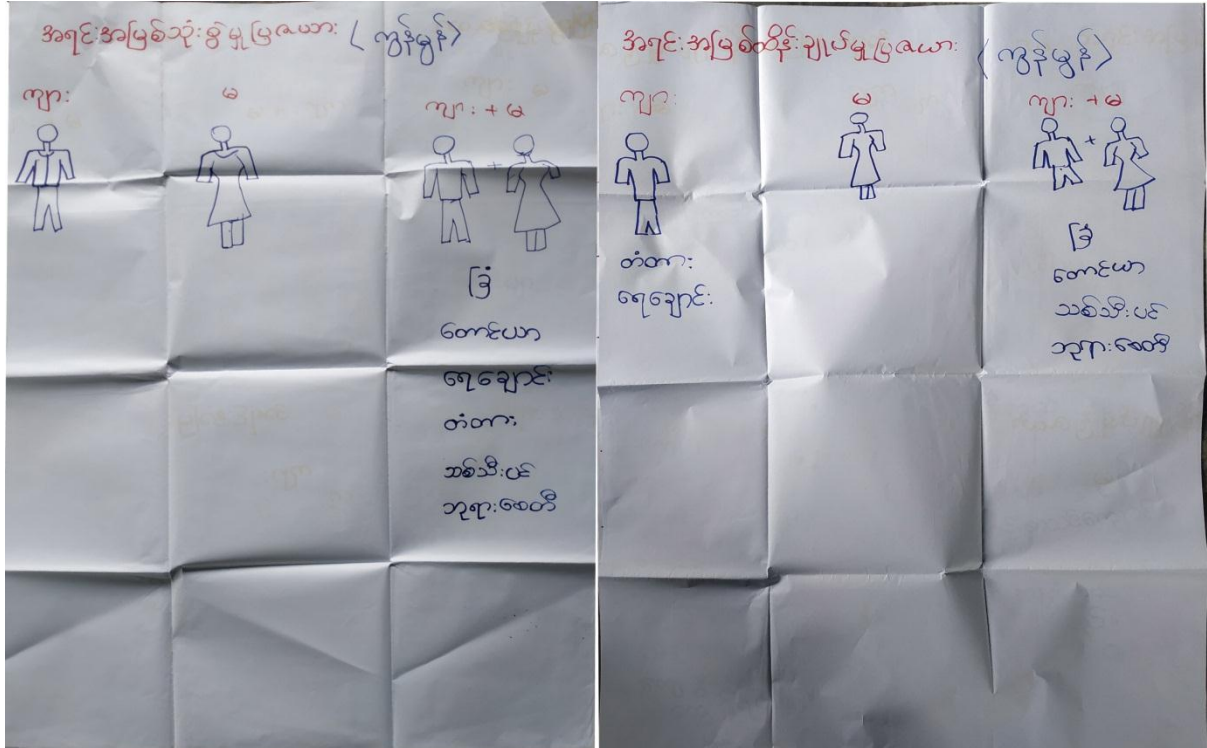 အရင်းအမြစ်သုံးစွဲမှုပြဇယား (ကွန်မွန်)
ကျား မ ကျား + မ
+
ခြံ
တောင်ယာ
ရေချောင်း
တံတား
သစ်သီးပင်
ဘုရားစေတီ
အရင်းအမြစ်ထိန်းချုပ်မှုပြဇယား (ကွန်မွန်)
ကျား မ ကျား + မ
+
တံတား
ရေချောင်း
ခြံ
တောင်ယာ
သစ်သီးပင်
ဘုရားစေတီ